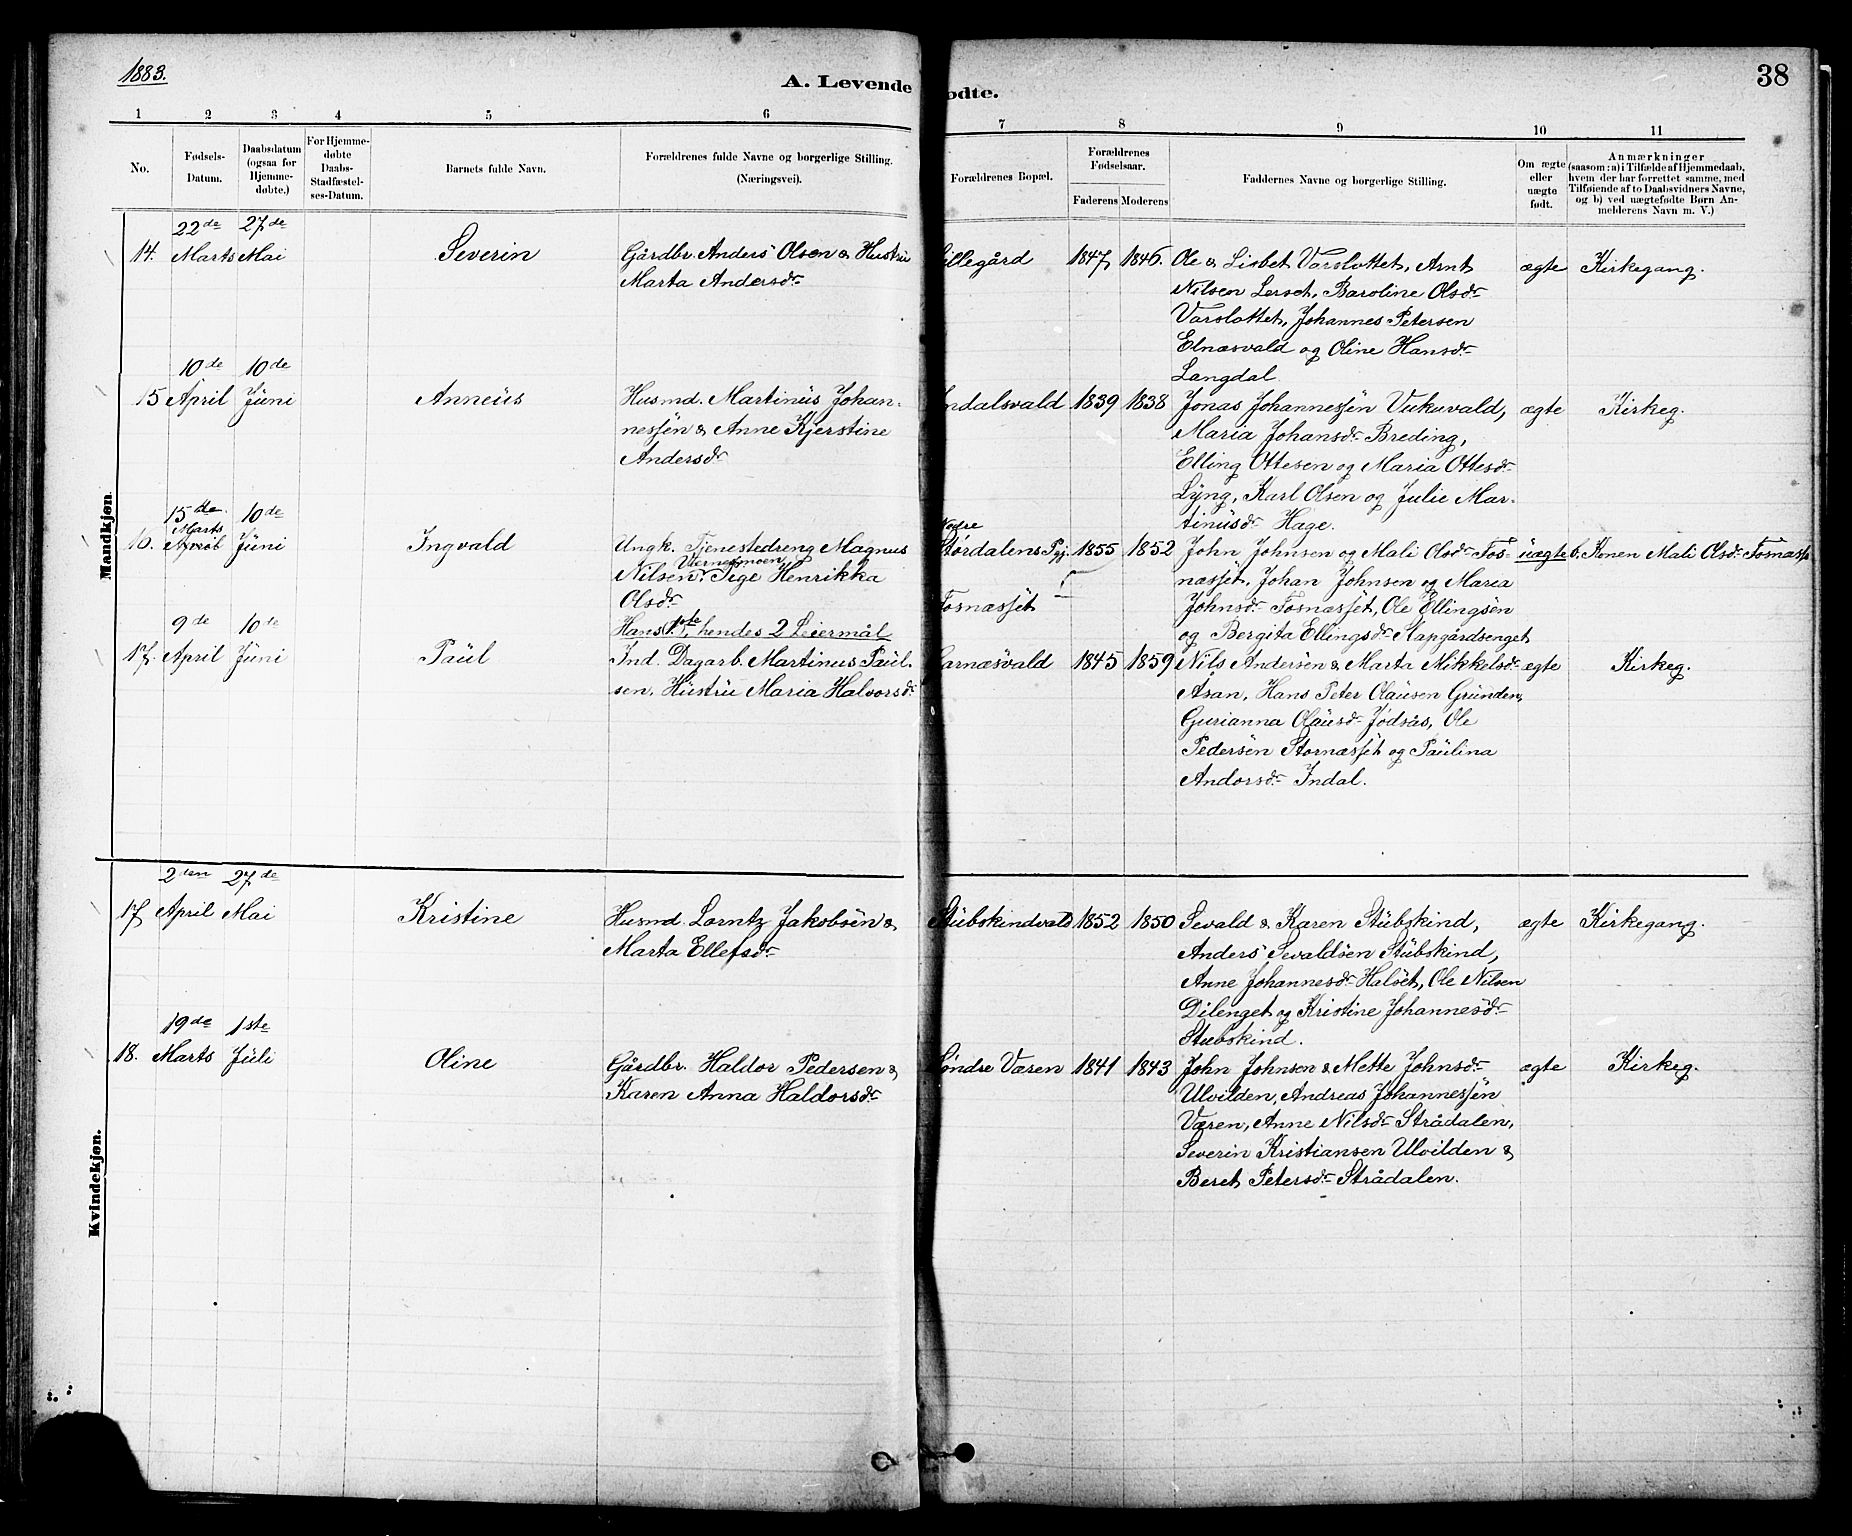 1883.
A. Levende
ødte.
38
1 2 3 4 5 6 7 8 9 10 11
No.
Fødsels-
Datum.
Daabsdatum
(ogsaa for
Hjemme-
døbte.)
For Hjemme-
døbte
Daabs-
Stadfæstel-
ses-Datum.
Barnets fulde Navn.
Forældrenes fulde Navne og borgerlige Stilling.
(Næringsvei).
Forældrenes Bopæl.
Forældrenes
Fødselsaar.
Faderens Moderens
Faddernes Navne og borgerlige Stilling.
Om ægte
eller
uægte
født.
Anmærkninger
(saasom: a) i Tilfælde af Hjemmedaab,
hvem der har forrettet samme, med
Tilføiende af to Daabsvidners Navne,
og b) ved uægtefødte Børn An-
melderens Navn m. V.)
Mandkjøn.
22de 27de
14. Marts Mai Severin Gårdbr. Anders Olsen & Hustru
Marta Andersdr
illegård 1847 1846. Ole & Lisbet Varslottet, Arnt ægte Kirkegang.
Nilsen Lerset, Baroline Olsdr
Varslottet, Johannes Petersen
Elnæsvald og Oline Hansdr
Langdal.
10de 10de
15 April Juni Anneus Husmd. Martinus Johan-
nessen & Anne Kjerstine
Andersdr
ndalsvald 1839 1838 Jonas Johannessen Vukuvald, ægte Kirkeg.
Maria Johansdr Breding,
Elling Ottesen og Maria Ottesdr
Lyng, Karl Olsen og Julie Mar-
tinusdr Hage.
15de 10de
Marts
16. April Juni Ingvald Ungk. Tjenestedreng Magnus
Nilsen Værnesmoen, Pige Henrikka
Olsdr
Hans 1ste, hendes 2 Leiermål
Nedre
Størdalens Pgj. 1855 1852 John Johnsen og Mali Olsdr Fos- uægte b. Konen Mali Olsdr Fosnæss
Fosnæsset
næsset, Johan Johnsen og Maria
Johnsdr Fosnæsset, Ole Ellingsen
og Bergita Ellingsdr Mapgårdsenget
9de 10de
17. April Juni Paul Ind. Dagarb. Martinus Paul-
sen, Hustru Maria Halvorsdr
arnæsvald 1845 1859 Nils Andersen & Marta Mikkelsdr ægte Kirkeg.
Åsan, Hans Peter Olausen Grunden,
Gurianna Olausdr Jødsås, Ole
Pedersen Stornæsset og Paulina
Andorsdr Indal.
Kvindekjøn.
2den 27de
17 April Mai Kristine Husmd. Lorntz Jakobsen &
Marta Ellefsdr
Stubskindvald 1852 1850 Sevald & Karen Stubskind, ægte Kirkegang.
Anders Sevaldsen Stubskind,
Anne Johannesdr Halset, Ole Nilsen
Dilenget og Kristine Johannesdr
Stubskind.
19de 1ste
18. Marts Juli Oline Gårdbr. Haldor Pedersen &
Karen Anna Haldorsdr
Søndre Væren 1841 1843 John Johnsen & Mette Johnsdr ægte Kirkeg.
Ulvilden, Andreas Johannessen
Væren, Anne Nilsdr Strådalen,
Severin Kristiansen Ulvilden &
Beret Petersdr Strådalen.